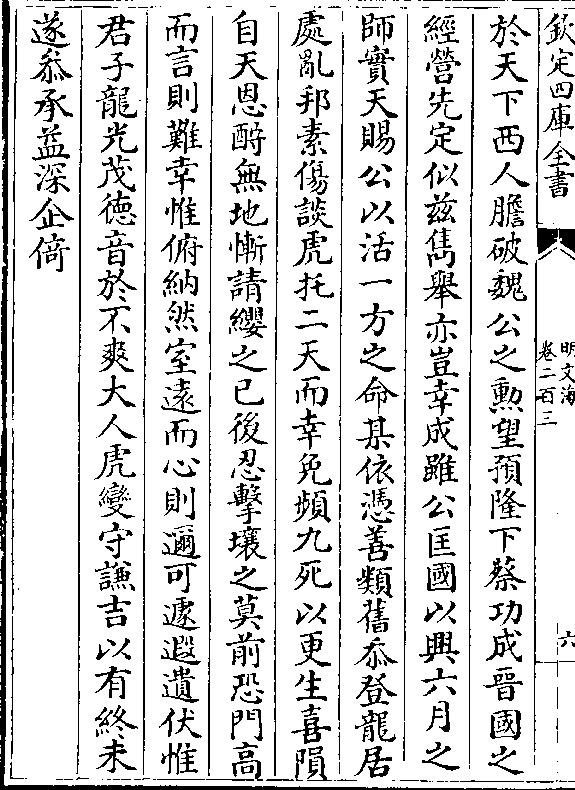 欽定四庫全書
明文海
卷二百三
六
於天下西人膽破魏公之勲望預隆下蔡功成晉國之
經營先定似兹雋舉亦豈幸成雖公匡國以興六月之
師實天賜公以活一方之命某依憑善類舊忝登龍居
處亂邦素傷談虎托二天而幸免頻九死以更生喜隕
自天恩酧無地慚請纓之已後忍擊壤之莫前恐門高
而言則難幸惟俯納然室遠而心則邇可遽遐遺伏惟
君子龍光茂德音於不爽大人虎變守謙吉以有終未
遂叅承益深企倚